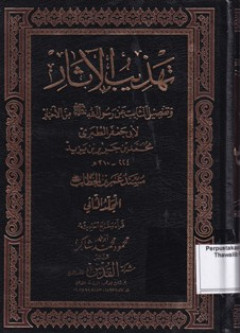 تهذيب الآثار
وتفصيل الثابت عن رسول الله ﷺ من الأخبار
لأبي جعفر الطبري
محمد بن جرير بن يزيد
٢٢٤ - ٣١٠ هـ
مسند عمر بن الخطاب
السفر الثاني
محمود محمد شاكر
Perpustakaan